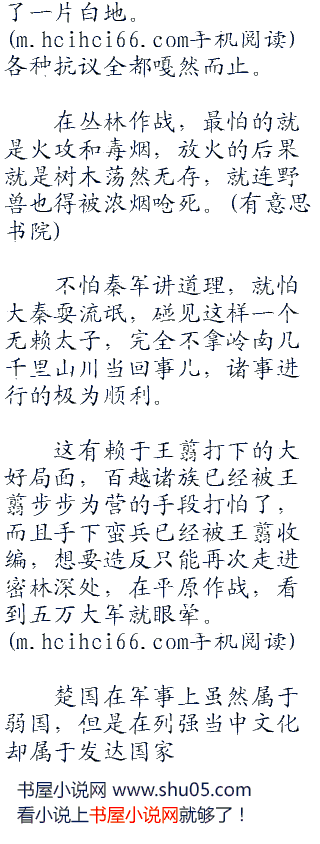 了一片白地。
(m.hcihci66.com手机阅读)
各种抗议全都嘎然而止。
在丛林作战，最怕的就
是火攻和毒烟，放火的后果
就是树木荡然无存，就连野
兽也得被浓烟呛死。(有意思
书院)
不怕秦军讲道理，就怕
大秦耍流氓，碰见这样一个
无赖太子，完全不拿岭南几
千里山川当回事儿，诸事进
行的极为顺利。
这有赖于王翦打下的大
好局面，百越诸族已经被王
翦步步为营的手段打怕了，
而且手下蛮兵已经被王翦收
编，想要造反只能再次走进
密林深处，在平原作战，看
到五万大军就眼晕。
(m.hcihci66.com手机阅读)
楚国在军事上虽然属于
弱国，但是在列强当中文化
却属于发达国家
书屋小说网 www.shu05.com
看小说上书屋小说网就够了！